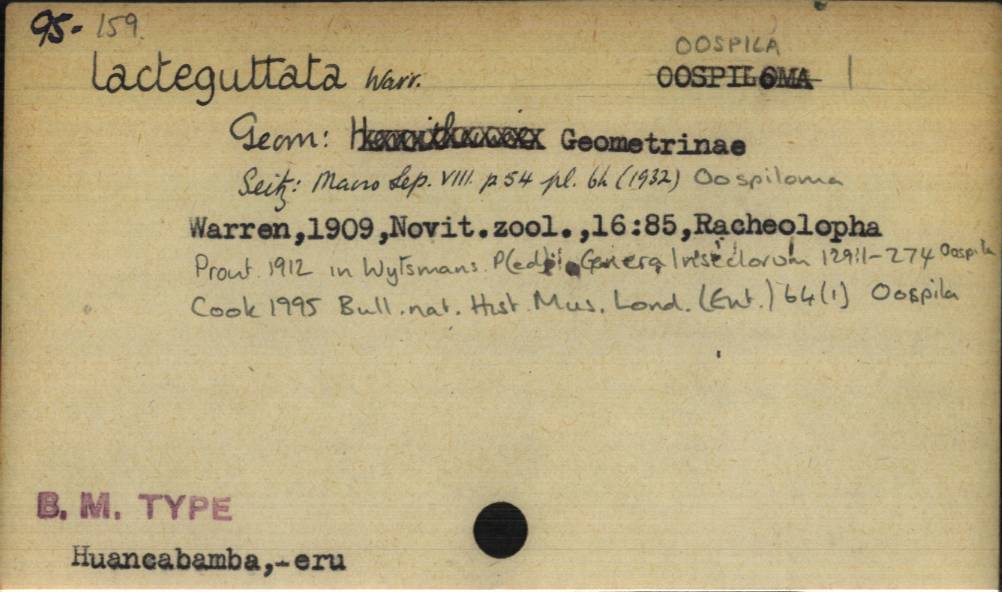 95- 159.
OOSPILA
lacteguttata Warr. OOSPILOMA
Geom: Geometrinae
Seitz: Macro Lep. VIII. p 54 pl. 6h (1932) Oospiloma
Warren,1909,Novit.zool.,16:85,Racheolopha
Prout 1912 in Wytsmans. P(ed) Genera Insectorum 129:1-274 Oospila
Cook 1995 Bull. nat. Hist Mus. Lond. (Ent.) 64(1) Oospila
B. M. TYPE
Huancabamba,-eru